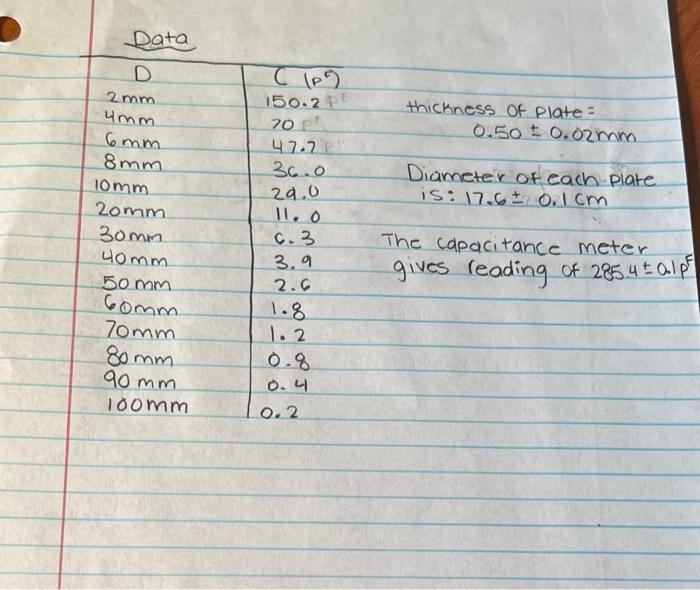 Data
D C (pF)
2mm 150.2 pF
4mm 70 pF
6mm 47.7 pF
8mm 36.0
10mm 29.0
20mm 11.0
30mm 6.3
40mm 3.9
50mm 2.6
60mm 1.8
70mm 1.2
80mm 0.8
90mm 0.4
100mm 0.2
thickness of plate =
0.50 ± 0.02mm
Diameter of each plate
is: 17.6 ± 0.1cm
The capacitance meter
gives reading of 285.4 ± 0.1pF